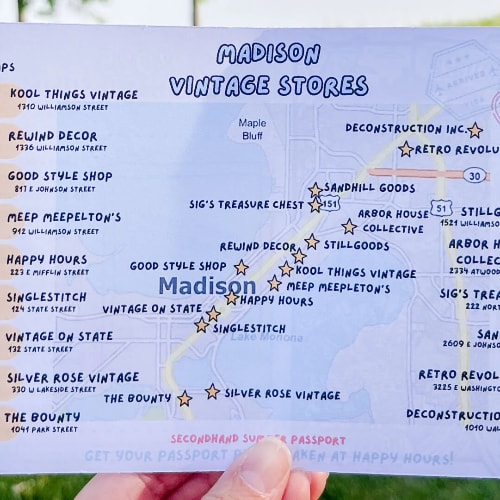 MADISON
VINTAGE STORES
KOOL THINGS VINTAGE
1310 WILLIAMSON STREET
REWIND DECOR
1336 WILLIAMSON STREET
GOOD STYLE SHOP
817 E JOHNSON STREET
MEEP MEEPELTON'S
912 WILLIAMSON STREET
HAPPY HOURS
223 E MIFFLIN STREET
SINGLESTITCH
124 STATE STREET
VINTAGE ON STATE
132 STATE STREET
SILVER ROSE VINTAGE
330 W LAKESIDE STREET
THE BOUNTY
1041 PARK STREET
Maple
Bluff
DECONSTRUCTION INC.
RETRO REVOLU
30
SANDHILL GOODS
SIG'S TREASURE CHEST
151
51
ARBOR HOUSE
COLLECTIVE
REWIND DECOR
STILLGOODS
GOOD STYLE SHOP
KOOL THINGS VINTAGE
Madison
MEEP MEEPLETON'S
HAPPY HOURS
VINTAGE ON STATE
SINGLESTITCH
Lake Monona
THE BOUNTY
SILVER ROSE VINTAGE
STILLG
1521 WILLIAMSO
ARBOR H
COLLEC
2334 ATWOOD
SIG'S TREA
222 NORT
SAN
2609 E JOHNS
RETRO REVOL
3225 E WASHINGT
DECONSTRUCTIO
1010 WAL
SECONDHAND SUMMER PASSPORT
GET YOUR PASSPORT TAKEN AT HAPPY HOURS!